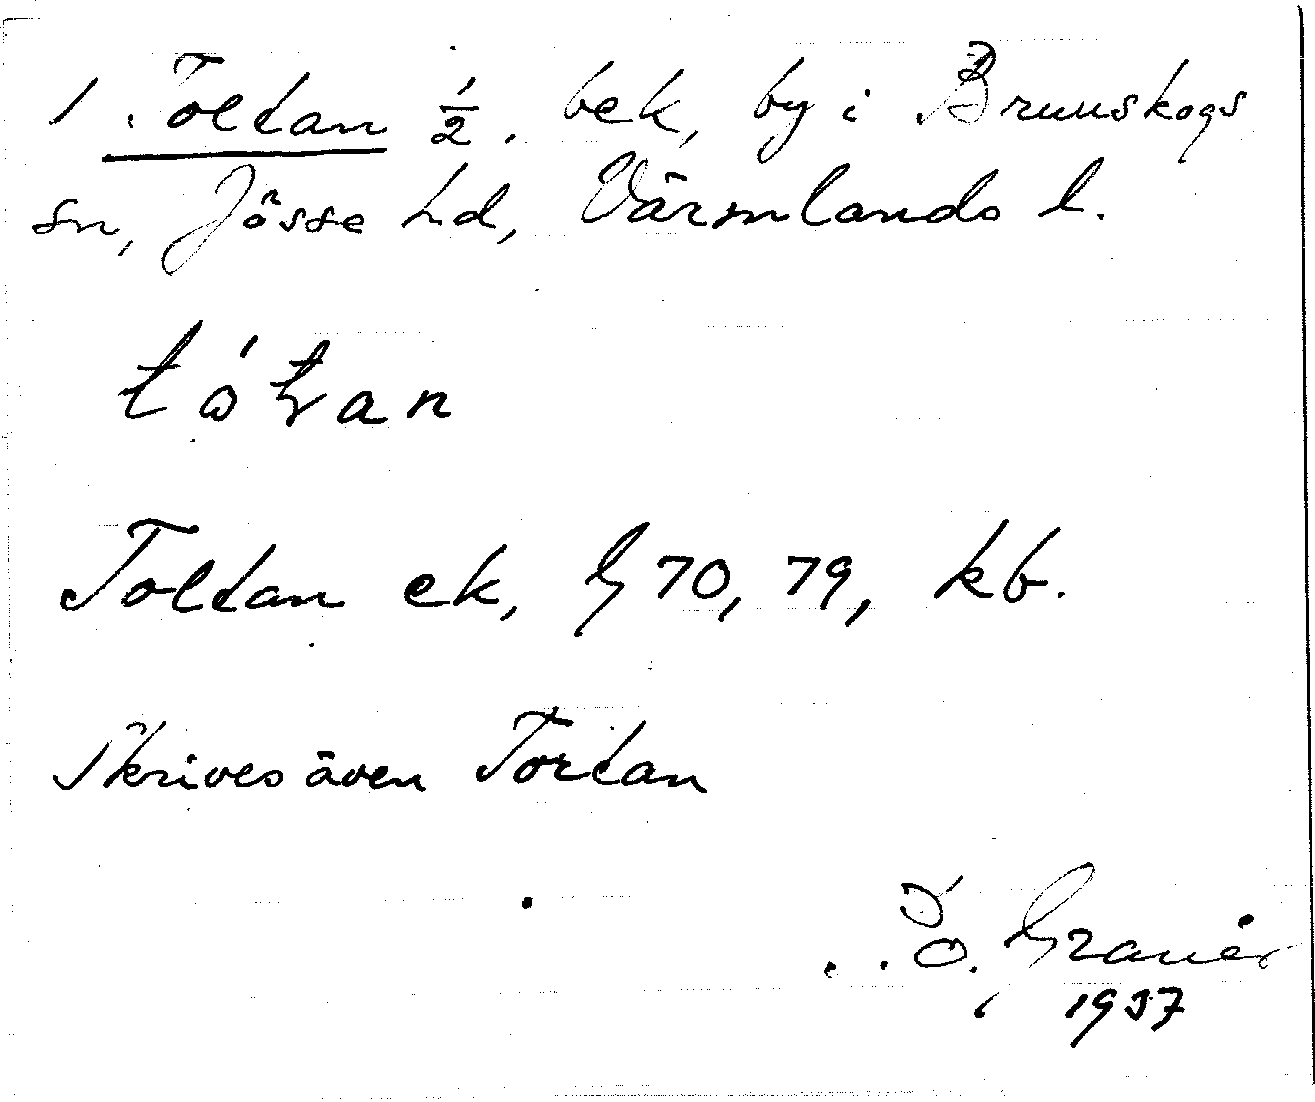 1. Toltan 1/2. bek, by i Brunskogs
sn, Jösse hd, Värmlands l.
Toltan ek, G 70, 79, kb.
Skrives även Tortan
Granér
1937